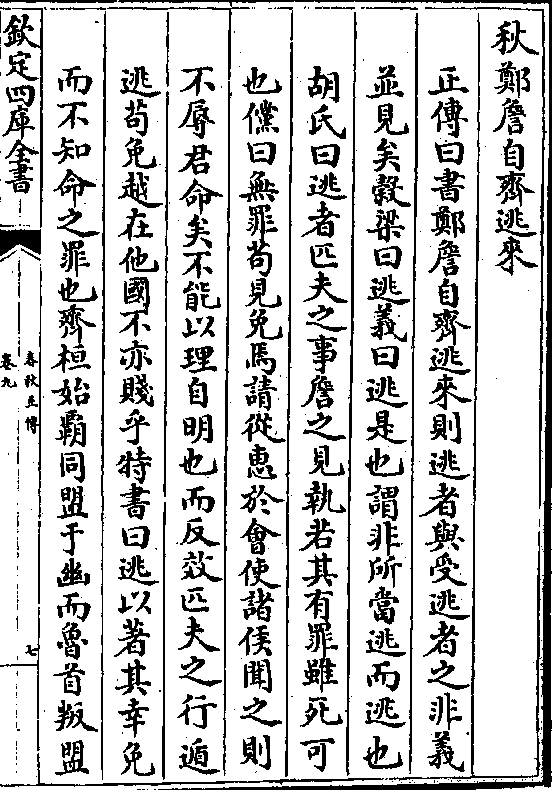 秋鄭詹自齊逃來
正傳曰書鄭詹自齊逃來則逃者與受逃者之非義
並見矣穀梁曰逃義曰逃是也謂非所當逃而逃也
胡氏曰逃者匹夫之事詹之見執若其有罪雖死可
也儻曰無罪苟見免焉請從惠於會使諸侯聞之則
不辱君命矣不能以理自明也而反效匹夫之行遁
逃苟免越在他國不亦賤乎特書曰逃以著其幸免
而不知命之罪也齊桓始霸同盟于幽而魯首叛盟
欽定四庫全書
春秋正傳
卷九
七